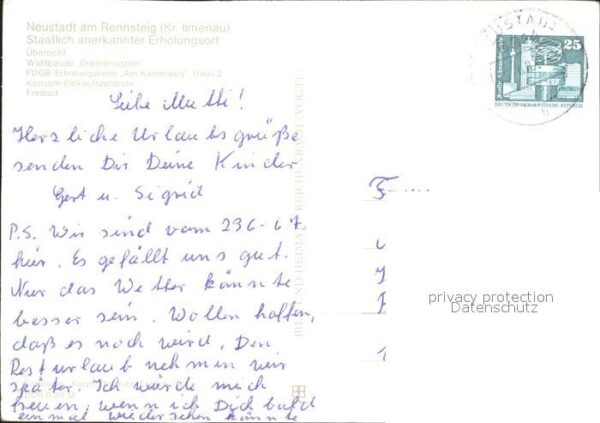 Neustadt am Rennsteig (Kr. Ilmenau)
Staatlich anerkannter Erholungsort
Übersicht
Waldbaude „Dreiherrnstein"
FDGB-Erholungsheim „Am Kammweg", Haus 2
Konsum-Einkaufszentrum
Freibad
25
DEUTSCHE DEMOKRATISCHE REPUBLIK
Liebe Mutti!
Herzliche Urlaubsgrüße
senden Dir Deine Kinder
Gert u. Sigrid
P.S. Wir sind vom 23.6-6.7
hier. Es gefällt uns gut.
Nur das Wetter könnte
besser sein. Wollen hoffen,
daß es noch wird. Den
Resturlaub nehmen wir
später. Ich würde mich
freuen, wenn ich Dich bald
einmal wiedersehen könnte
BILD UND HEIMAT REICHENBACH (VOGTL)
F.....
privacy protection
Datenschutz